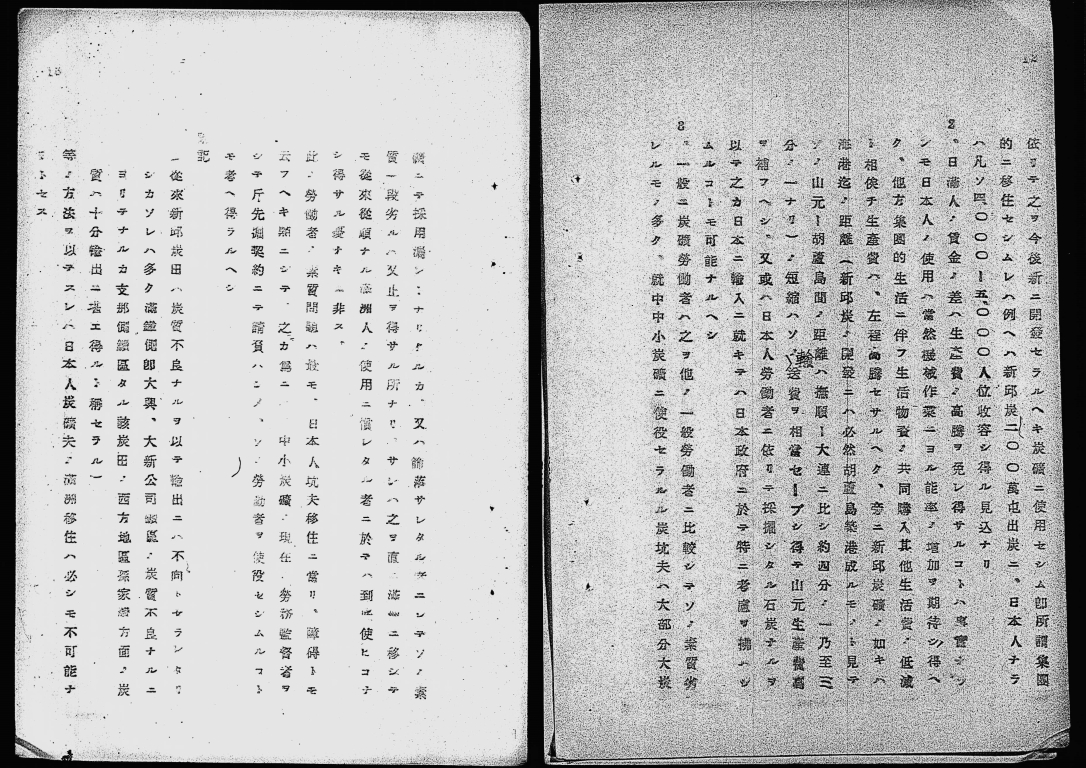 12
依リテ之ヲ今後新ニ開發セラルヘキ炭礦ニ使用セシム卽所謂集團
的ニ移住セシムレハ例ヘハ新邱炭二〇〇萬屯出炭ニ、日本人ナラ
ハ凡ソ四〇〇〇ー五〇〇〇人位收容シ得ル見込ナリ
2、日滿人ノ賃金ノ差ハ生產費ノ高騰ヲ免レ得サルコトハ事實ナ
シモ日本人ノ使用ハ當然機械作業ニヨル能率ノ增加ヲ期待シ得ヘ
ク、他方集團的生活ニ伴フ生活物資ノ共同購入其他生活費ノ低減
ト相俟チ生產費ハ、左程高騰セサルヘク、旁ニ新邱炭礦ノ如キハ
海港迄ノ距離(新邱炭ノ開發ニハ必然胡蘆島築港成ルモノト見テ
ソノ山元ー胡蘆島間ノ距離ハ撫順ー大連ニ比シ約四分ノ一乃至三
分ノ一ナリ)ノ短縮ハソノ輸送費ヲ相當セーブシ得テ山元生產費高
ヲ補フヘシ、又或ハ日本人勞働者ニ依リテ採掘シタル石炭ナルヲ
以テ之カ日本ニ輸入ニ就キテハ日本政府ニ於テ特ニ考慮ヲ拂ハシ
ムルコトモ可能ナルヘシ
3、一般ニ炭礦勞働者ハ之ヲ他ノ一般勞働者ニ比較シテソノ素質劣
レルモノ多ク、就中中小炭礦ニ使役セラルル炭坑夫ハ大部分大炭
13
礦ニテ採用濟レトナリタルカ、又ハ篩落サレタル者ニシテソノ素
質一段劣ルハ又止ヲ得サル所ナリ、サレハ之ヲ直ニ滿洲ニ移シテ
モ從來從順ナル滿洲人ノ使用ニ慣レタル者ニ於テハ到底使ヒコナ
シ得サル憂ナキニ非ス、
此ノ勞働者ノ素質問題ハ最モ、日本人坑夫移住ニ當リ、障碍トモ
云フヘキ類ニシテ、之カ爲ニハ中小炭礦ノ現在ノ勞務監督者ヲ
シテ斤先掘契約ニテ請負ハシメ、ソノ勞働者ヲ使役セシムルコト
モ考ヘ得ラルヘシ
記
一從來新邱炭田ハ炭質不良ナルヲ以テ輸出ニハ不向トセラレタリ
シカソレハ多ク滿鐵側卽大興、大新公司礦區ノ炭質不良ナルニ
ヨリテナルカ支那側礦區タル該炭田ノ西方地區孫家灣方面ノ炭
質ハ十分輸出ニ堪エ得ルト稱セラル一
等ノ方法ヲ以テスレハ日本人炭礦夫ノ滿洲移住ハ必シモ不可能ナ
トセス